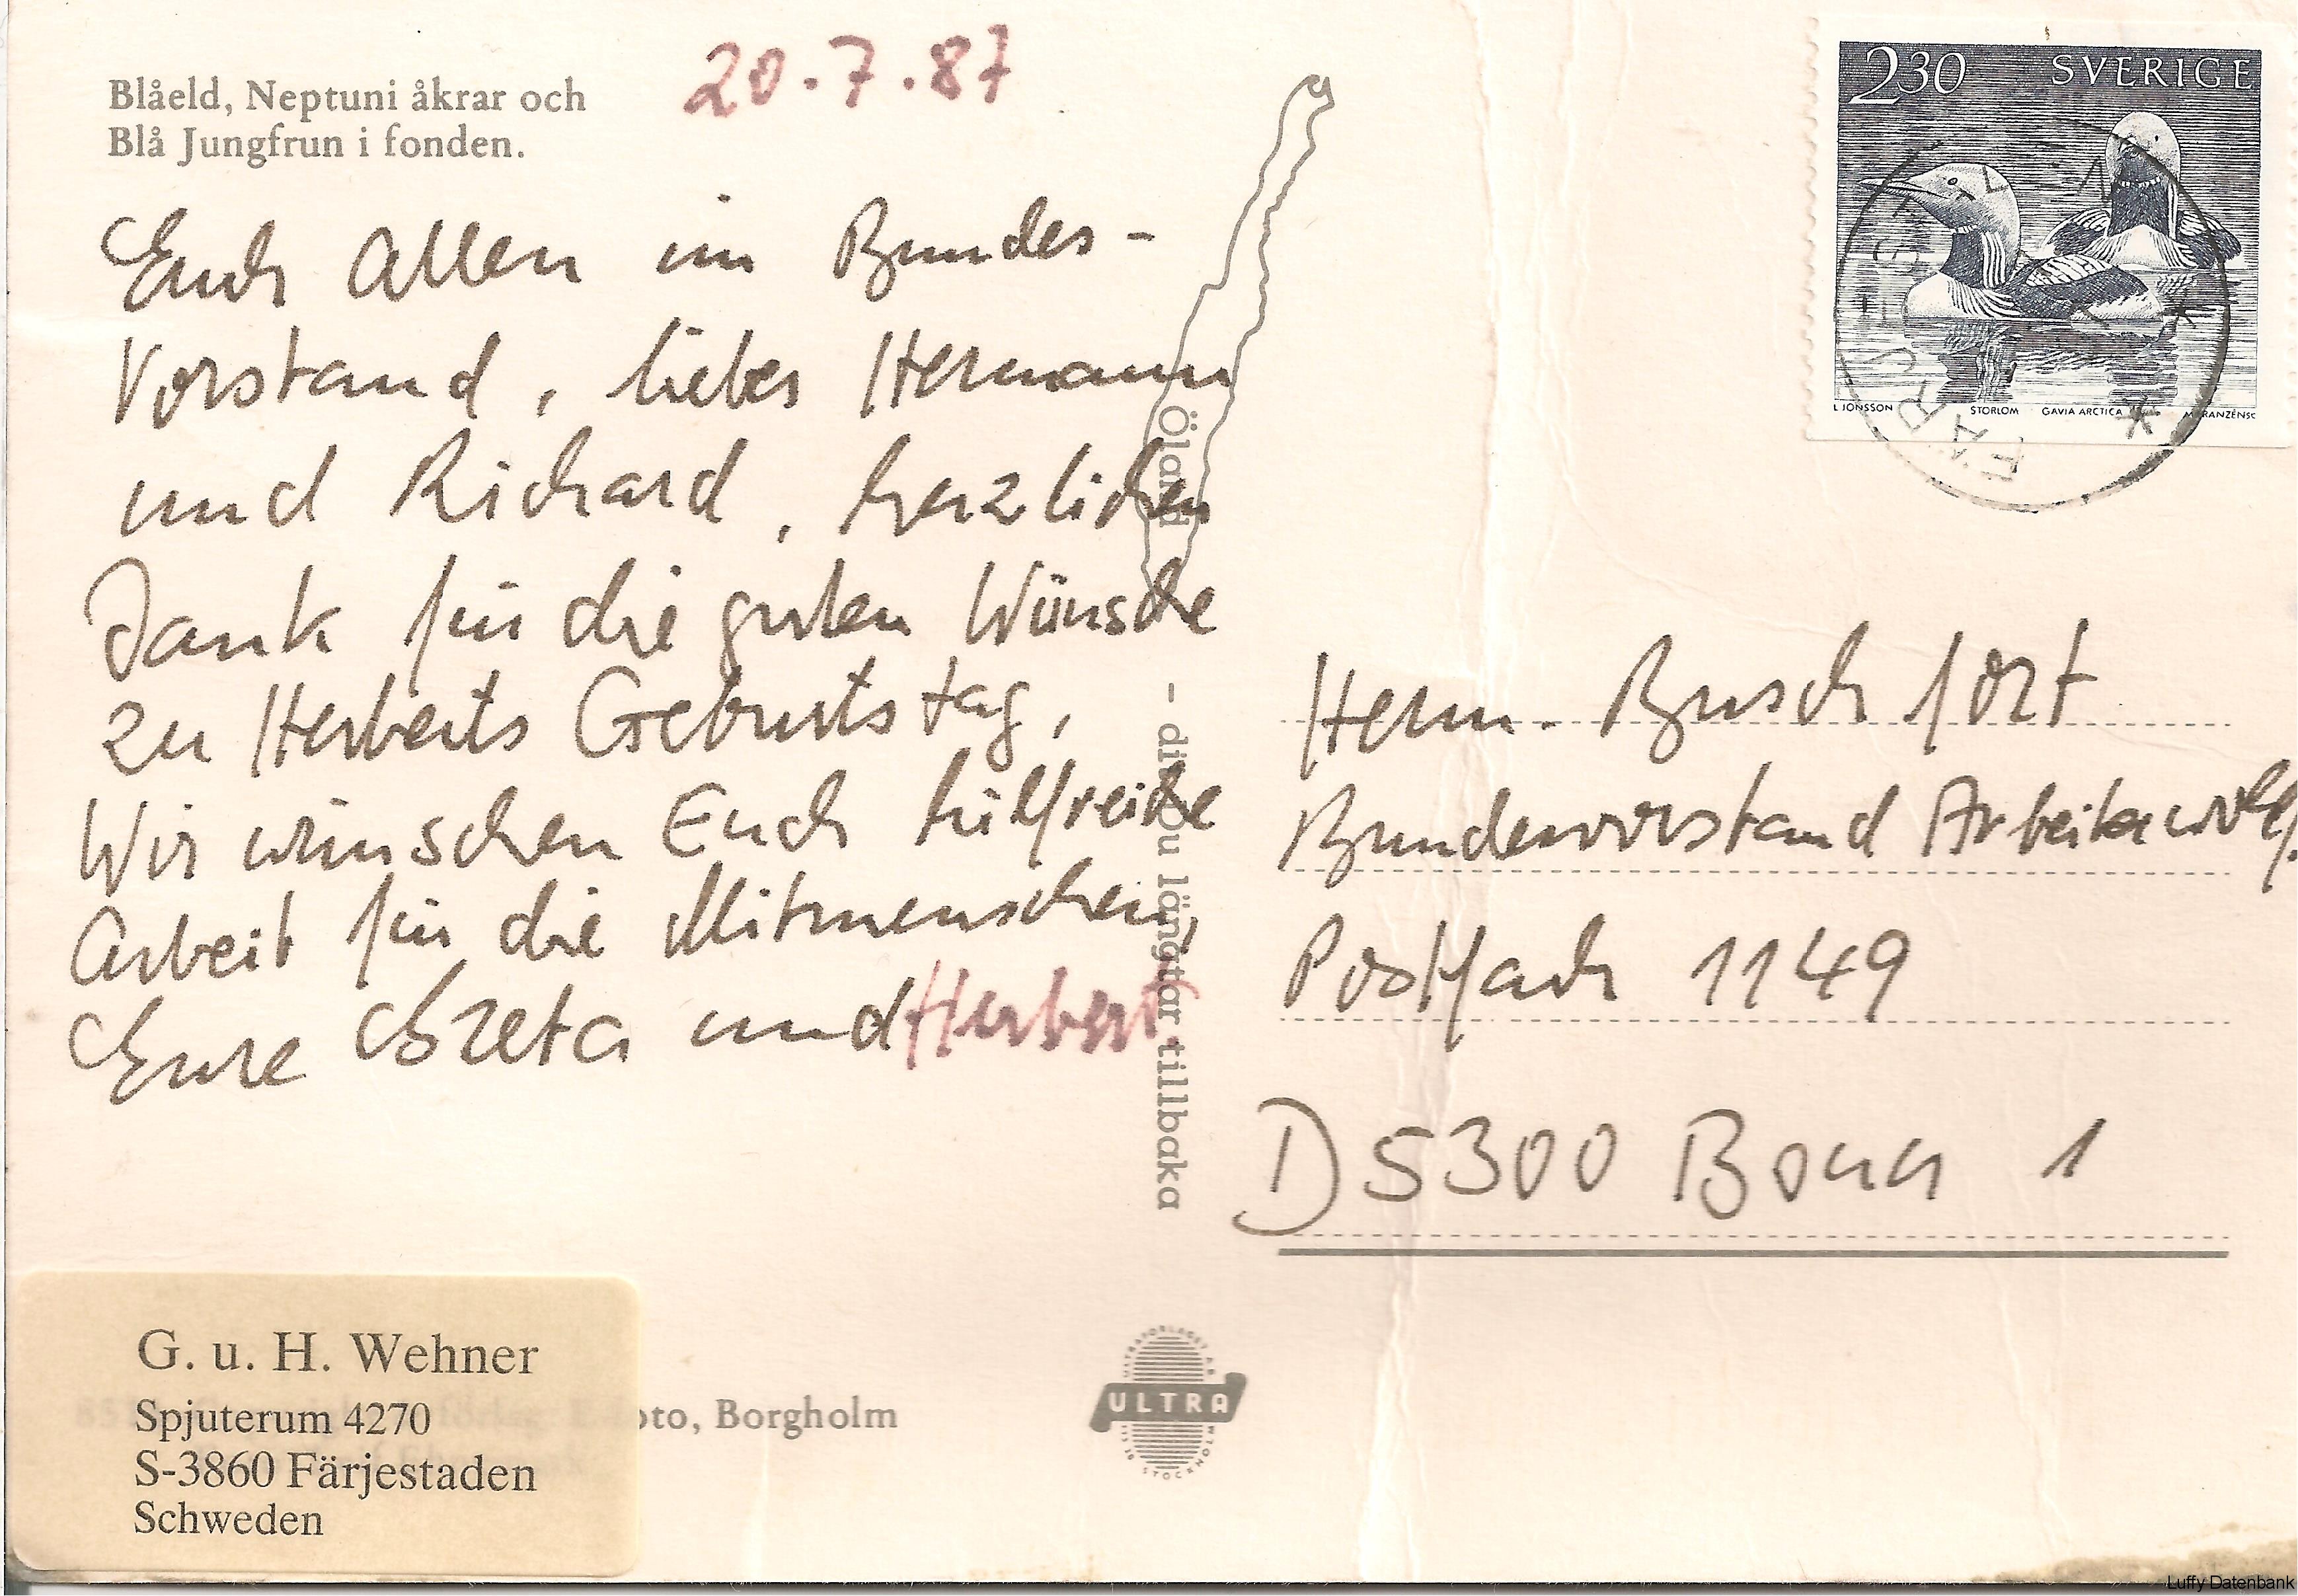 Blåeld, Neptuni åkrar och
Blå Jungfrun i fonden.
20.7.87
Euch Allen im Bundes-
Vorstand, lieber Hermann
und Richard, herzlichen
Dank für die guten Wünsche
zu Herberts Geburtstag,
Wir wünschen Euch hilfreiche
Arbeit für die Mitmenschen,
Eure Greta und Herbert.
Öland - dit du längtar tillbaka
230 SVERIGE
L JONSSON STORLOM GAVIA ARCTICA
FÄRJESTADEN
Herm. Buschfort
Bundesvorstand Arbeiterwohlf.
Postfach 1149
D 5300 Bonn 1
G. u. H. Wehner
Spjuterum 4270
S-3860 Färjestaden
Schweden
Borgholm
ULTRA
Luffy Datenbank